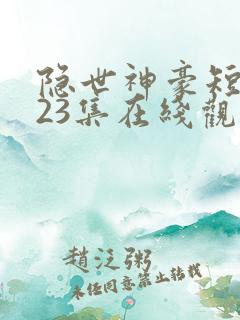 隐世神豪短
23集在线觀
趙泛粥
未经同意禁止转载